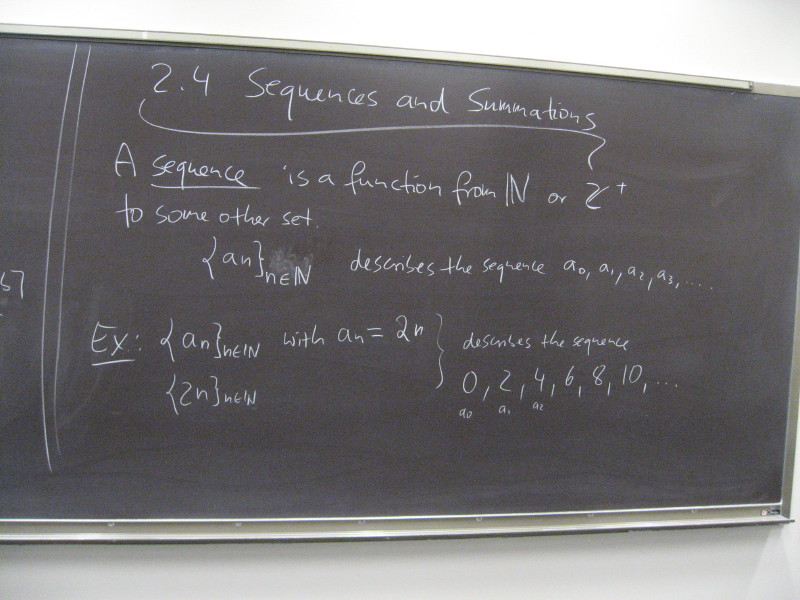 2.4 Sequences and Summations
A sequence is a function from ℕ or ℤ⁺
to some other set.
{an}n∈ℕ describes the sequence a₀, a₁, a₂, a₃, ....
Ex: {an}n∈ℕ with an = 2n } describes the sequence
{2n}n∈ℕ 0, 2, 4, 6, 8, 10, ...
a₀ a₁ a₂